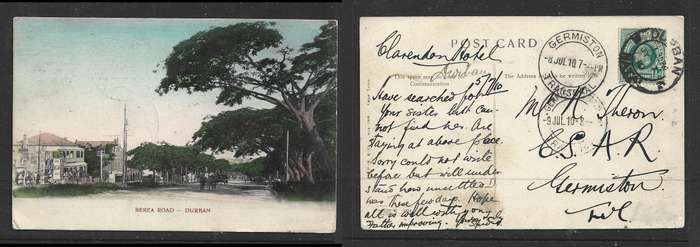 BEREA ROAD – DURBAN
POST CARD
This space may be
Communication
The Address
be written here
Clarendon Hotel
Durban
5/7/10
Have searched for
Your Sister but can
not find her. Are
staying at above place.
Sorry could not write
before but will under
stand how unsettled I
was these few days. Hope
all is well with you
Father improving.
GERMISTON
8 JUL 10
TRANSVAAL
9 JUL 10
DURBAN
Theron.
C.S.A.R
Germiston